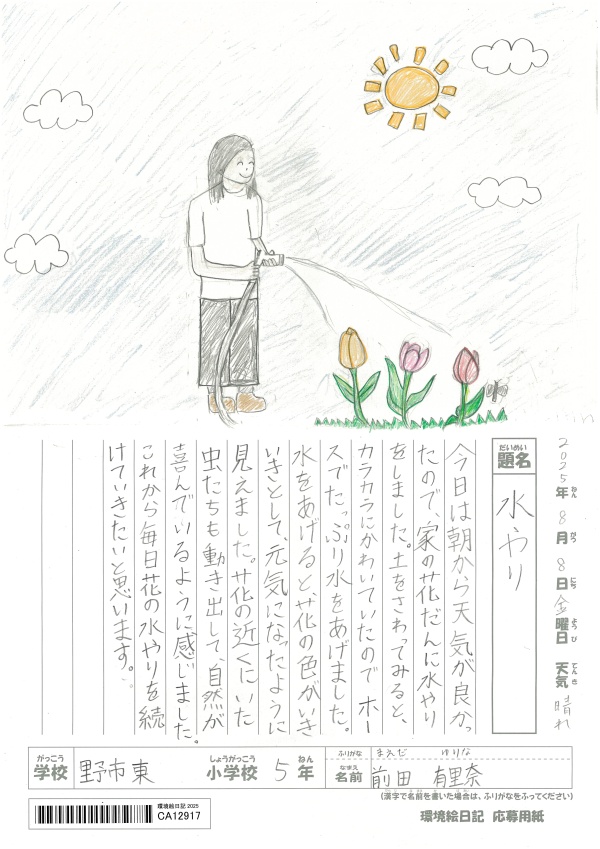 2025年ねん8月がつ8日にち金曜日ようび 天気てんき 晴れ
だいめい
題名
水やり
今日は朝から天気が良かっ
たので、家の花だんに水やり
をしました。土をさわってみると、
カラカラにかわいていたので ホー
スでたっぷり水をあげました。
水をあげると、花の色がいき
いきとして、元気になったように
見えました。花の近くにいた
虫たちも動き出して、自然が
喜んでいるように感じました。
これから毎日花の水やりを続
けていきたいと思います。
がっこう
学校
野市東
しょうがっこう
小学校
5
ねん
年
ふりがな
まえだ ゆりな
なまえ
名前
前田 有里奈
(漢字で名前を書いた場合は、ふりがなをふってください)
環境絵日記 2025
CA12917
環境絵日記 応募用紙